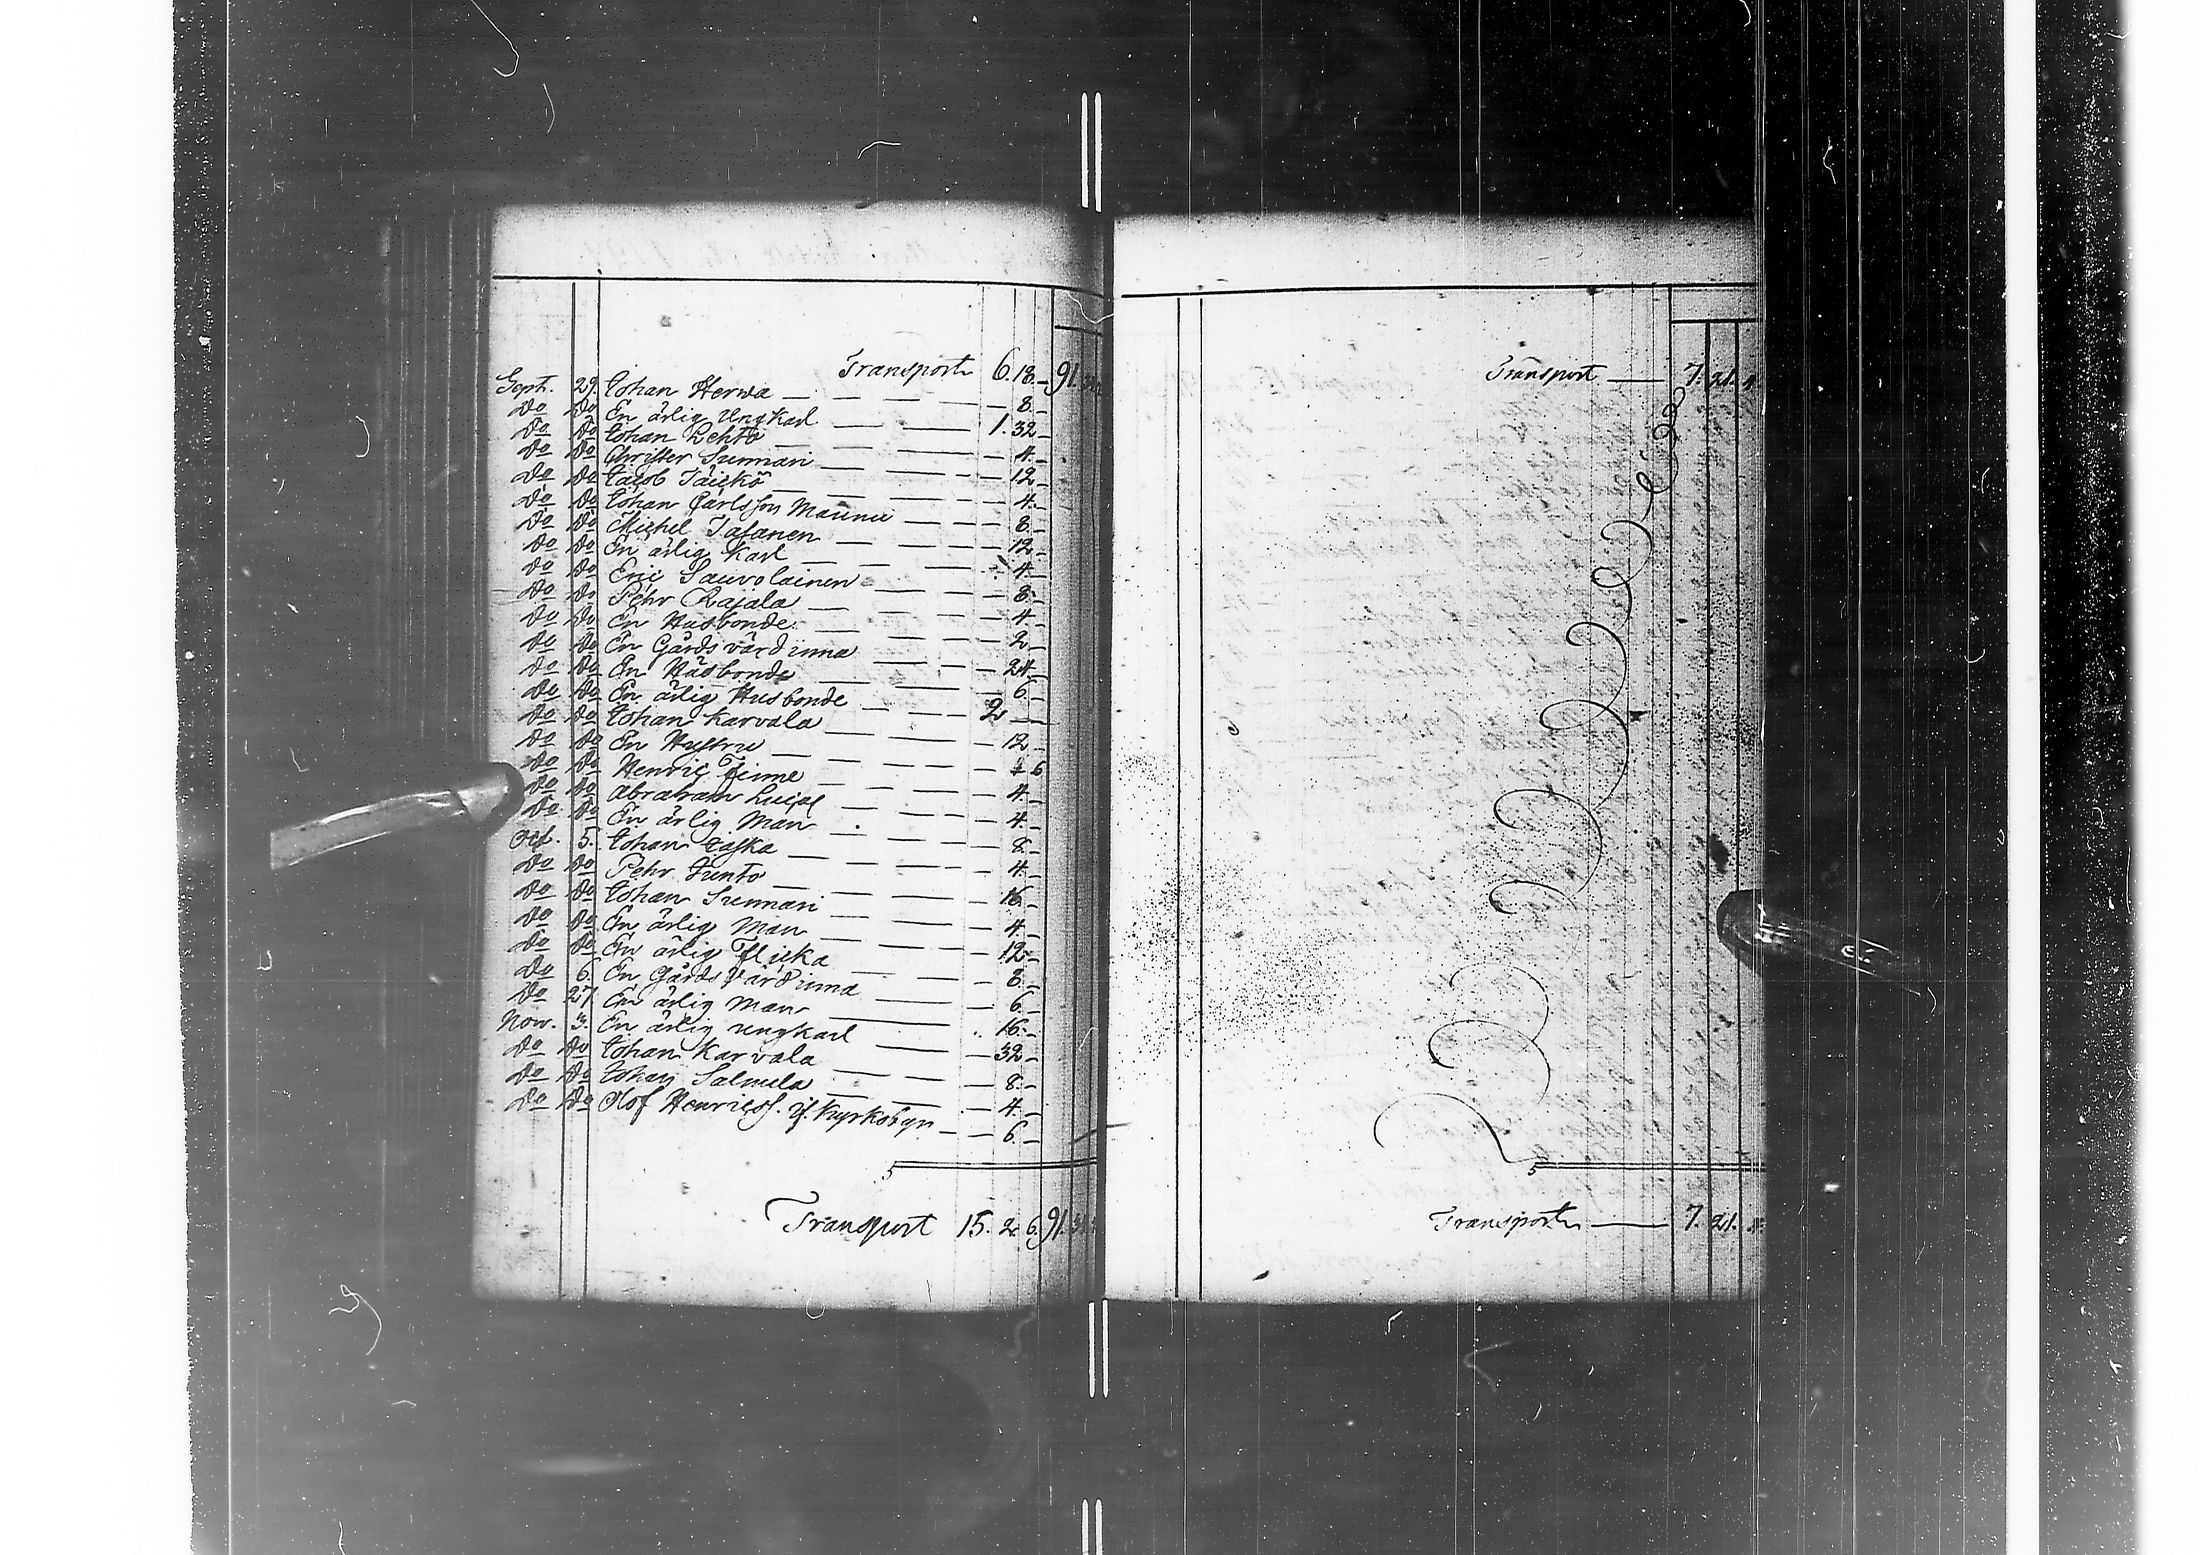 Transport 6. 18. — 91.
Sept. 29. Johan Herwa — — — — — 8. —
Do Do En ärlig Ungkarl — — 1. 32 —
Do Do Johan Lehto — — — — 4. —
Do Do Christer Sunnari — — — — 12 —
Do Do Jacob Jäickö — — — — 4. —
Do Do Johan Carlsson Maunu — — — 8. —
Do Do Michel — — — 12 —
Do Do En ärlig Karl — — — 4. —
Do Do Eric Sauvolainen — — — 8. —
Do Do Pehr Rajala — — — — 4. —
Do Do En Husbonde — — — — 2 —
Do Do En Gårds värdinna — — — 24. —
Do Do En Husbonde — — — — 6. —
Do Do En ärlig Husbonde — — — 2 —
Do Do Johan Karvala — — — — 12 —
Do Do En Hustru — — — — 6
Do Do Henric — — — 4. —
Do Do Abraham — — — 4. —
Do Do En ärlig Man — — — 8. —
Oct. 5. Johan — — — — 4. —
Do Do Pehr Junto — — — — 16. —
Do Do Johan Sunnari — — — 4. —
Do Do En ärlig Man — — — — 12. —
Do Do En ärlig Flicka — — — 8. —
Do 6. En Gårds Värdinna — — — 6. —
Do 27 En ärlig Man — — 16. —
Now. 3. En ärlig ungkarl — — — 32 —
Do Do Johan Karvala — — — 8. —
Do Do Johan Salmela — — — 4. —
Do Do Olof Henricss. if. Kyrkobyn — — 6. —
Transport 15. 2. 6. 91.
Transport — 7. 21.
Transport — 7. 21.